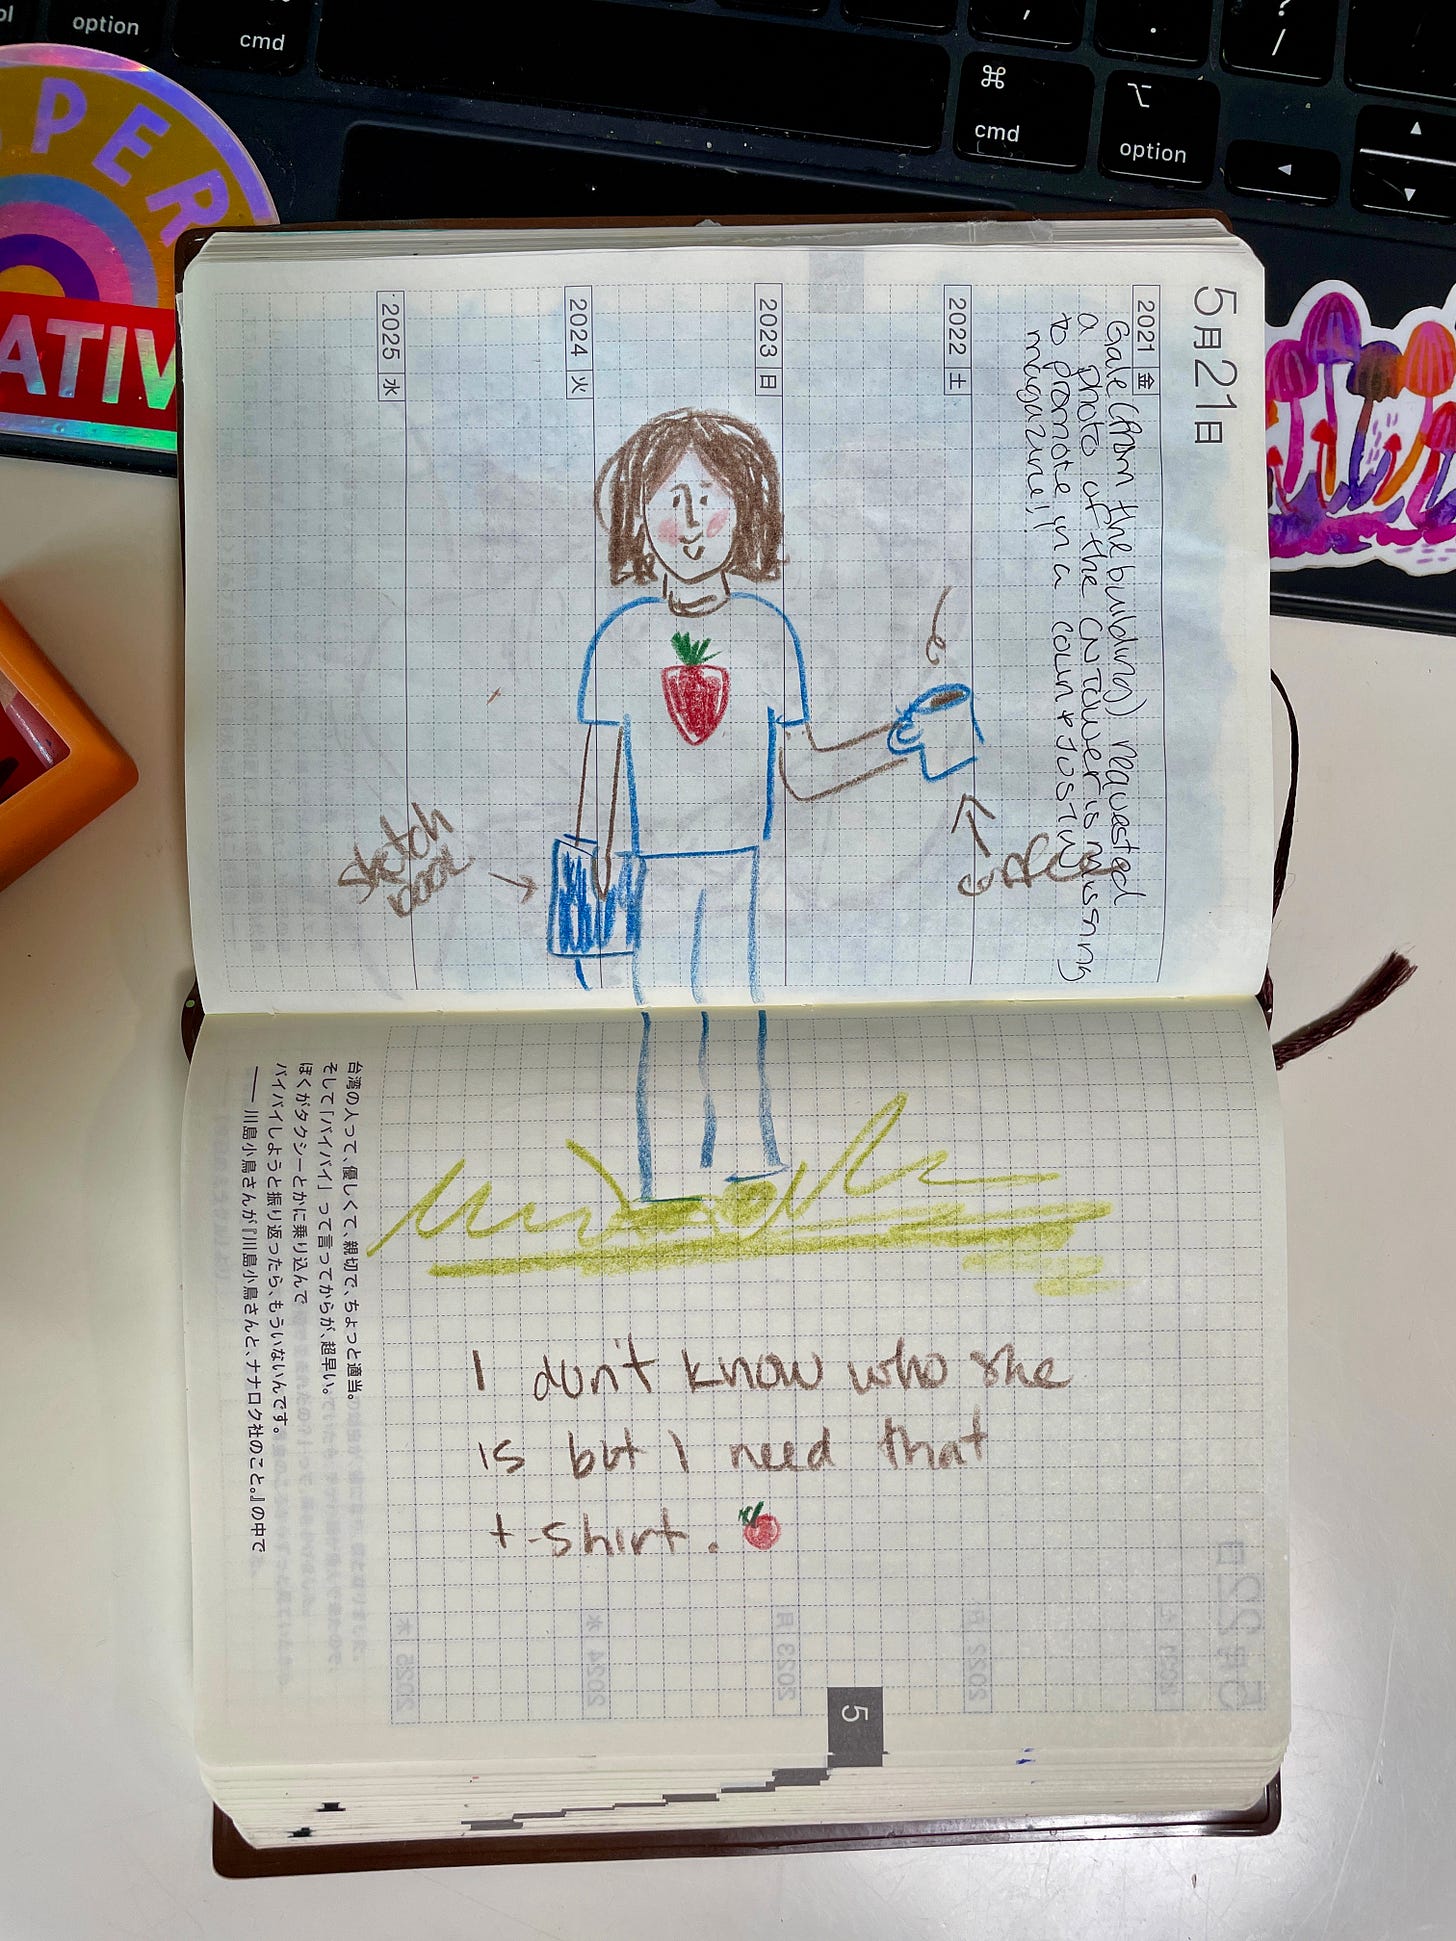 option
cmd
⌘
cmd
⌥
option
,
.
?
/
PER
ATIV
5月21日
2021 金
Gale (from the building) requested
a photo of the CN Tower is missing
to promote in a count + Justin
magazine!!
2022 土
2023 日
2024 火
2025 水
Sketch
book
台湾の人って、優しくて、親切で、ちょっと適当。
そして「バイバイ」って言ってからが、超早い。
ぼくがタクシーとかに乗り込んで
バイバイしようと振り返ったら、もういないんです。
—— 川島小鳥さんが『川島小鳥さんと、ナナロク社のこと。』の中で
I don't know who she
is but I need that
t-shirt.
5